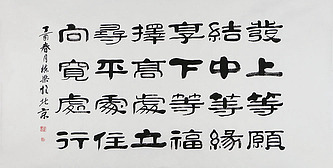 發上等願
結中等緣
享下等福
擇高處立
尋平處住
向寬處行
春月於北京